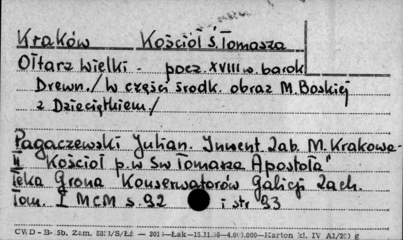 Kraków Kościół ś. Tomasza
Ołtarz Wielki - pocz. XVIII w. barok
Drewn. /W części środk. obraz M. Boskiej
z Dzieciątkiem./
Pagaczewski Julian. Inwent. Zab. M. Krakowa-
II "Kościół p.w Św Tomasza Apostoła"
Teka Grona Konserwatorów Galicji Zach.
Tom. I MCM s. 92 i str 93
CWD - B- 5b. Zam. — Łak — Karton kl. IV A1/